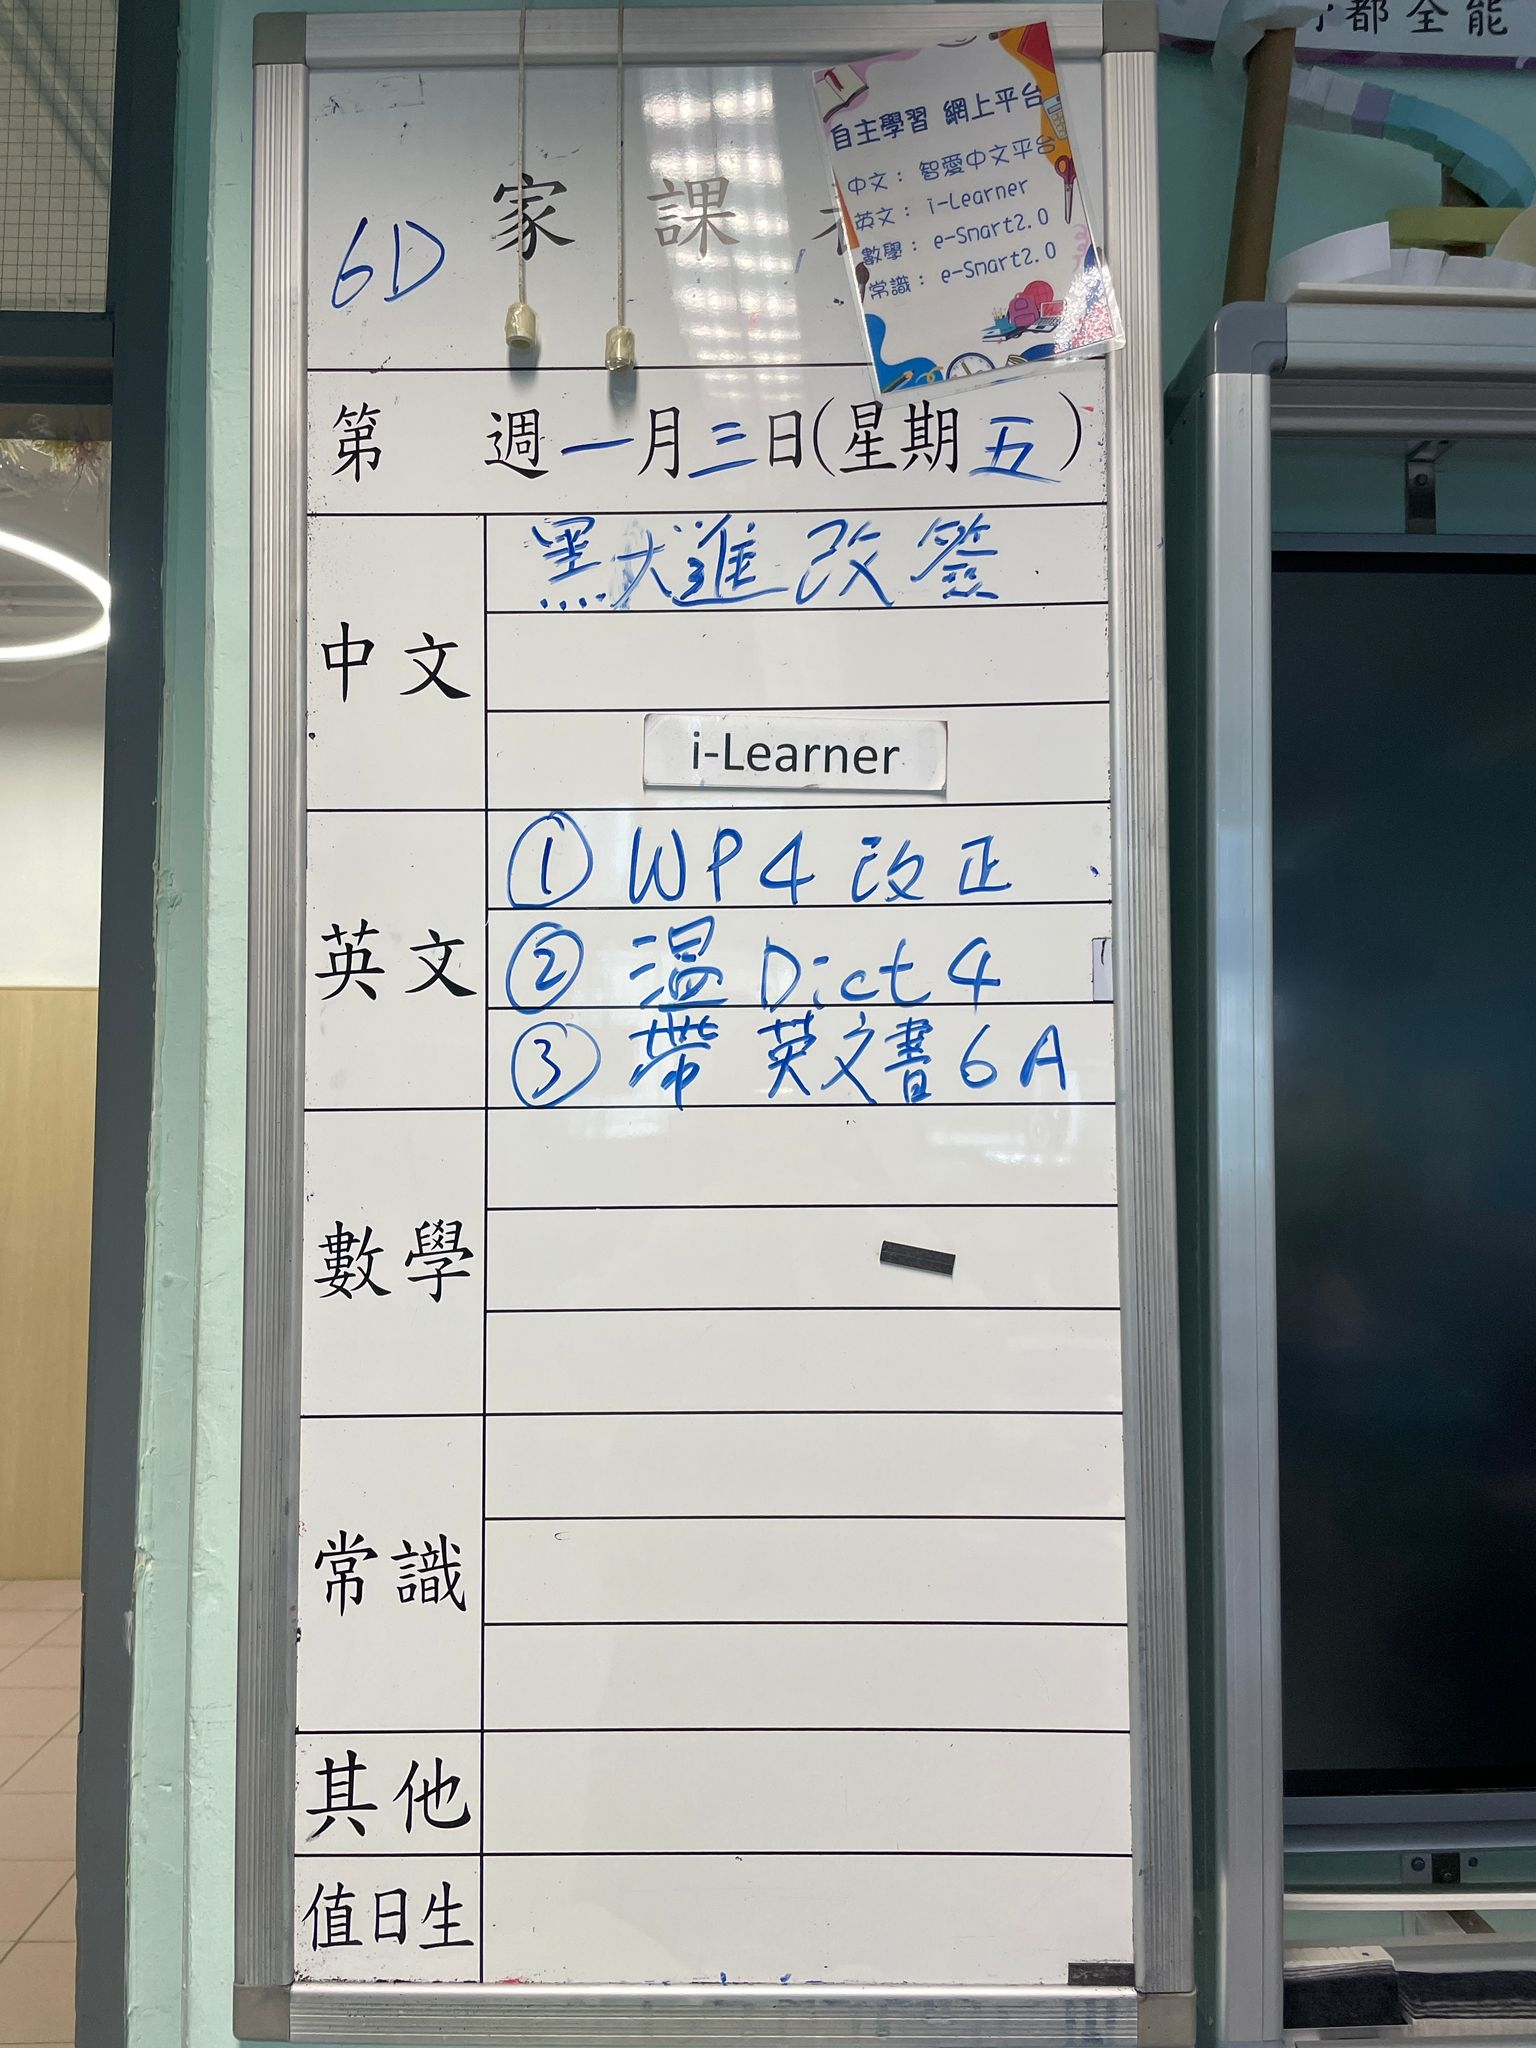 都全能
自主學習 網上平台
中文：智愛中文平台
英文：i-Learner
數學：e-Smart2.0
常識：e-Smart2.0
家課
6D
第 週一月三日(星期五)
中文
默大進改簽
i-Learner
英文
① WP4 改正
② 溫 Dict 4
③ 帶 英文書 6A
數學
常識
其他
值日生